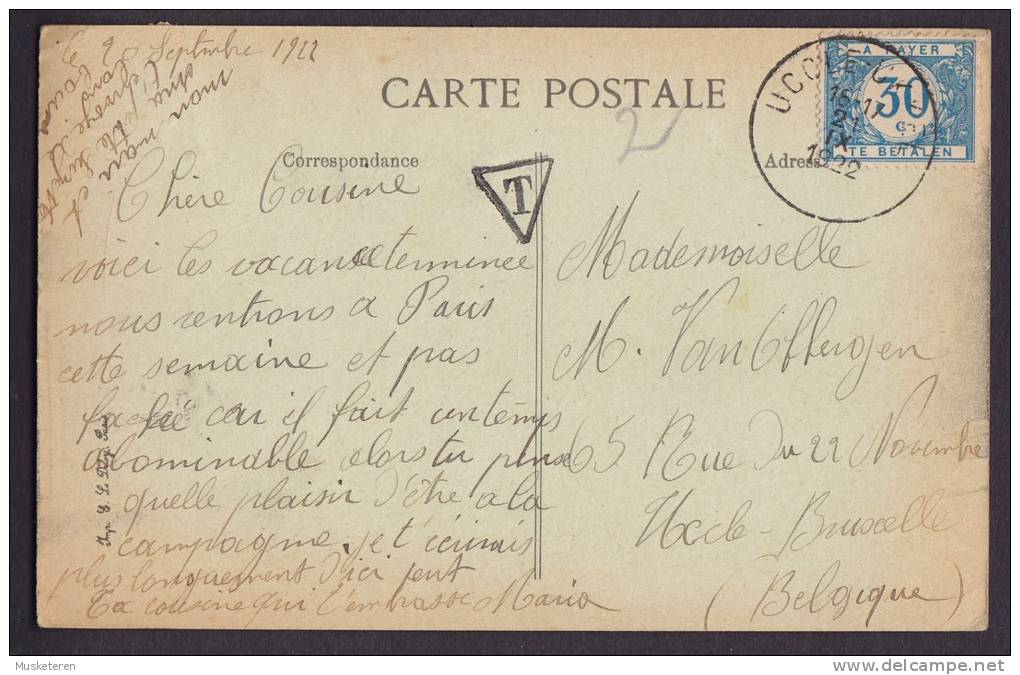 Le 9 Septmbre 1922
CARTE POSTALE
A PAYER
30
TE BETALEN
UCCLE
16-17
21
IX
1922
2
Correspondance
Adresse
T
mon mari et
Chère Cousine
voici les vacance terminee
nous rentrons a Paris
cette semaine et pas
faché car il fait un temps
abominable alors tu pense
quelle plaisir d'être a la
campagne. je t'écrirais
plus longuement d'ici peut
Ta cousine qui t'embrasse Maria
Mademoiselle
M. Van Obbergen
65 Rue du 22 Novembre
Uccle-Bruxelle
(Belgique)
Musketeren
delcampe.net